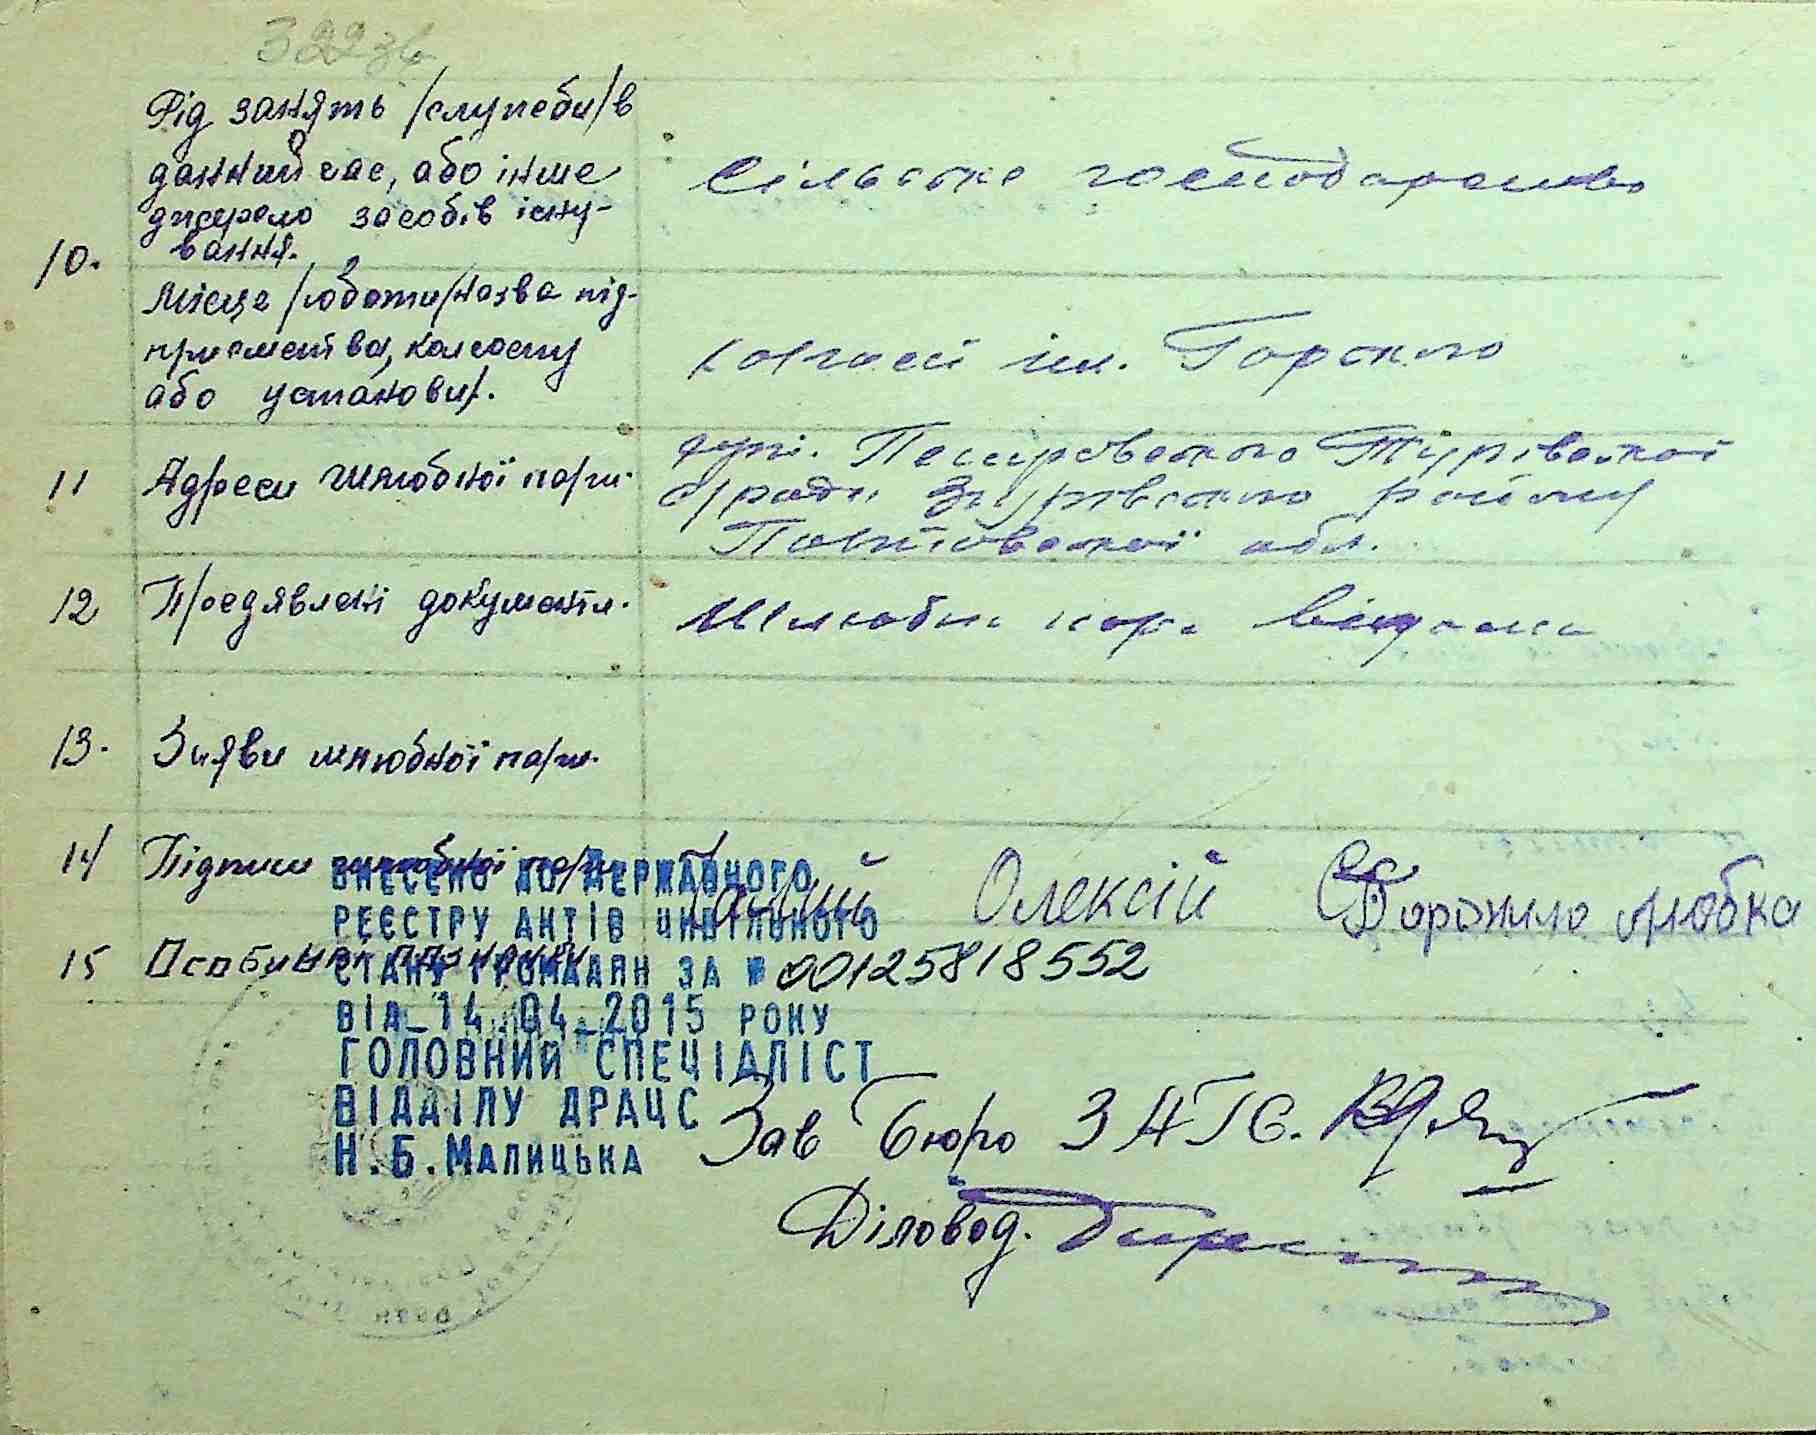 Рід занять /служби/ в
данний час, або інше
джерело засобів існу-
вання.
Сільське господарство
10.
Місце /роботи/назва під-
приємства, колгоспу
або установи/.
колгосп ім. Горского
11 Адреси шлюбної пари.
Турівської
с/ради Згурівского району
Полтавської обл.
12 Предявлені документи.
Шлюбна пара відома
13. Заяви шлюбної пари.
14 Підписи шлюбної пари
Олексій Ворожило Любка
15 Особливі
ВНЕСЕНО ДО ДЕРЖАВНОГО
РЕЄСТРУ АКТІВ ЦИВІЛЬНОГО
СТАНУ ГРОМАДЯН ЗА № 00125818552
ВІД 14.04.2015 РОКУ
ГОЛОВНИЙ СПЕЦІАЛІСТ
ВІДДІЛУ ДРАЦС
Н.Б.МАЛИЦЬКА
Зав Бюро ЗАГС.
Діловод.